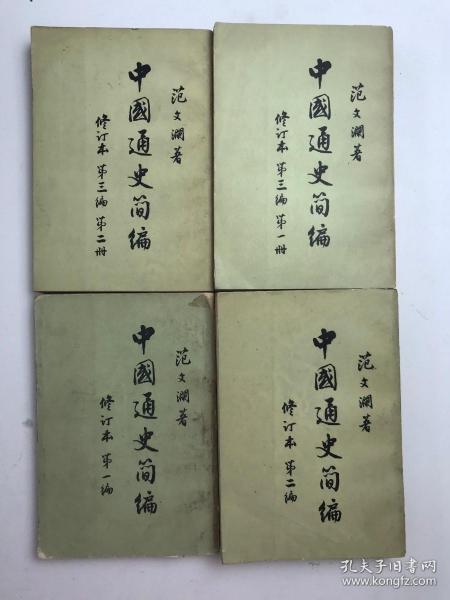 范文瀾著
中國通史简编
修订本 第三编 第二册
范文瀾著
中國通史简编
修订本 第三编 第一册
范文瀾著
中國通史简编
修订本 第一编
范文瀾著
中國通史简编
修订本 第二编
孔夫子旧书网
www.kongfz.com